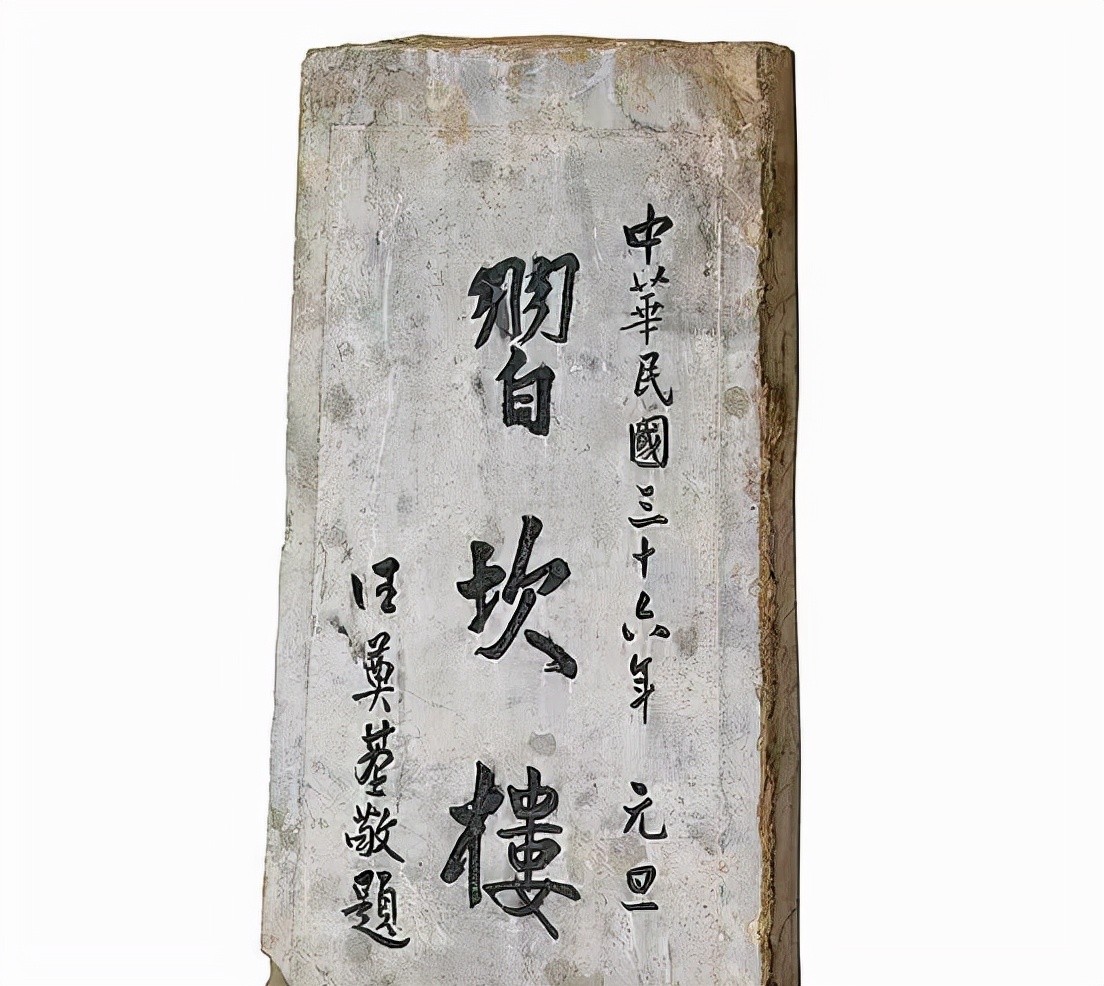 中華民國三十六年 元旦
習坎樓
汪奠基敬題